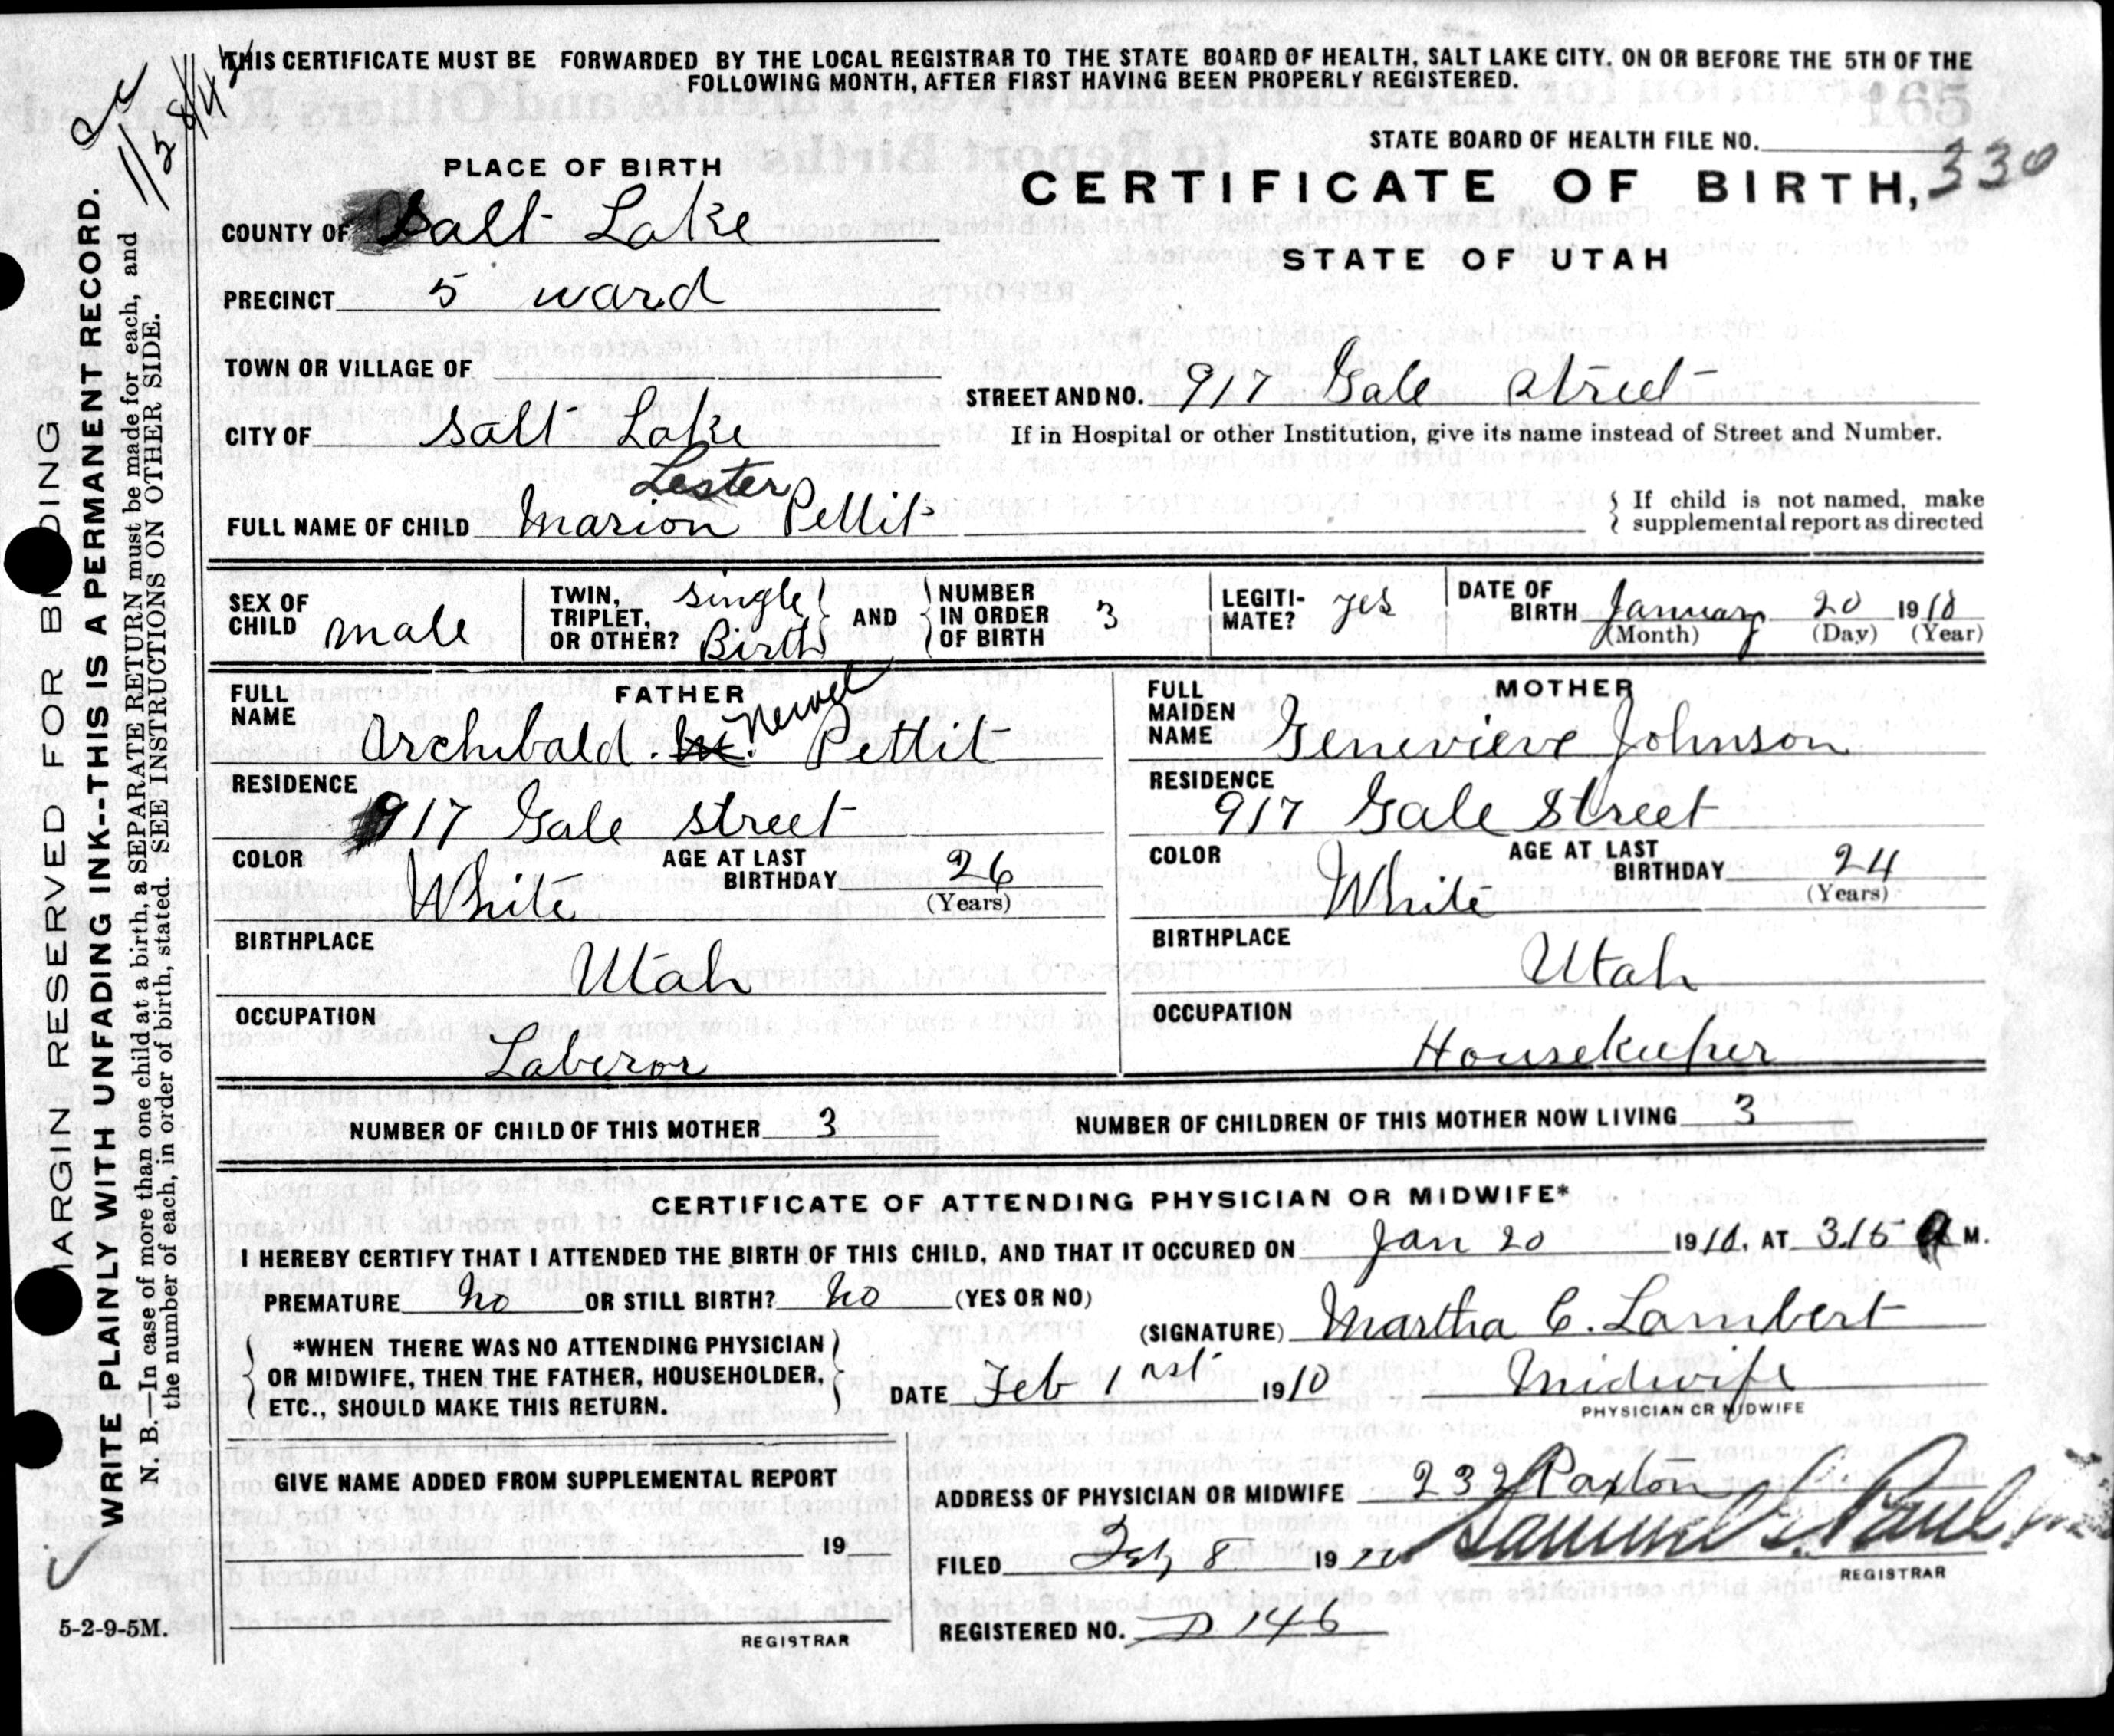 THIS CERTIFICATE MUST BE FORWARDED BY THE LOCAL REGISTRAR TO THE STATE BOARD OF HEALTH, SALT LAKE CITY, ON OR BEFORE THE 5TH OF THE
FOLLOWING MONTH, AFTER FIRST HAVING BEEN PROPERLY REGISTERED.
STATE BOARD OF HEALTH FILE NO.
330
PLACE OF BIRTH
CERTIFICATE OF BIRTH,
STATE OF UTAH
COUNTY OF Salt Lake
PRECINCT 5 ward
TOWN OR VILLAGE OF
STREET AND NO. 917 Gale street
CITY OF Salt Lake
If in Hospital or other Institution, give its name instead of Street and Number.
Lester
FULL NAME OF CHILD Marion Pettit
{ If child is not named, make
supplemental report as directed
SEX OF CHILD male
TWIN, TRIPLET, OR OTHER? single Birth } AND { NUMBER IN ORDER OF BIRTH 3
LEGITI-MATE? yes
DATE OF BIRTH January 20 1910
(Month) (Day) (Year)
FATHER
FULL NAME Archibald M. Newel Pettit
RESIDENCE
917 Gale street
COLOR White AGE AT LAST BIRTHDAY 26
(Years)
BIRTHPLACE
Utah
OCCUPATION
Laberor
MOTHER
FULL MAIDEN NAME Genevieve Johnson
RESIDENCE
917 Gale Street
COLOR White AGE AT LAST BIRTHDAY 24
(Years)
BIRTHPLACE
Utah
OCCUPATION
Housekeeper
NUMBER OF CHILD OF THIS MOTHER 3 NUMBER OF CHILDREN OF THIS MOTHER NOW LIVING 3
CERTIFICATE OF ATTENDING PHYSICIAN OR MIDWIFE*
I HEREBY CERTIFY THAT I ATTENDED THE BIRTH OF THIS CHILD, AND THAT IT OCCURED ON Jan 20 1910, AT 3.15 A M.
PREMATURE no OR STILL BIRTH? no (YES OR NO)
{ *WHEN THERE WAS NO ATTENDING PHYSICIAN
OR MIDWIFE, THEN THE FATHER, HOUSEHOLDER,
ETC., SHOULD MAKE THIS RETURN. }
(SIGNATURE) Martha C. Lambert
DATE Feb 1 nst 1910 Midwife
PHYSICIAN OR MIDWIFE
GIVE NAME ADDED FROM SUPPLEMENTAL REPORT
19
REGISTRAR
ADDRESS OF PHYSICIAN OR MIDWIFE 232 Paxton
FILED Feb 8 1910 Samuel G. Paul
REGISTRAR
REGISTERED NO. D 146
MARGIN RESERVED FOR BINDING
WRITE PLAINLY WITH UNFADING INK--THIS IS A PERMANENT RECORD.
N. B.—In case of more than one child at a birth, a SEPARATE RETURN must be made for each, and
the number of each, in order of birth, stated. SEE INSTRUCTIONS ON OTHER SIDE.
5-2-9-5M.